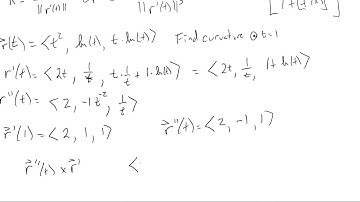 || r'(t)|| || r'(t) ||³
r⃗(t) = <t², ln(t), t·ln(t)> Find curvature @ t=1
r'(t) = <2t, 1/t, t·1/t + 1·ln(t)> = <2t, 1/t, 1+ln(t)>
r⃗''(t) = <2, -1t⁻², 1/t>
r⃗'(1) = <2, 1, 1> r⃗''(t) = <2, -1, 1>
r⃗''(t) × r⃗' <